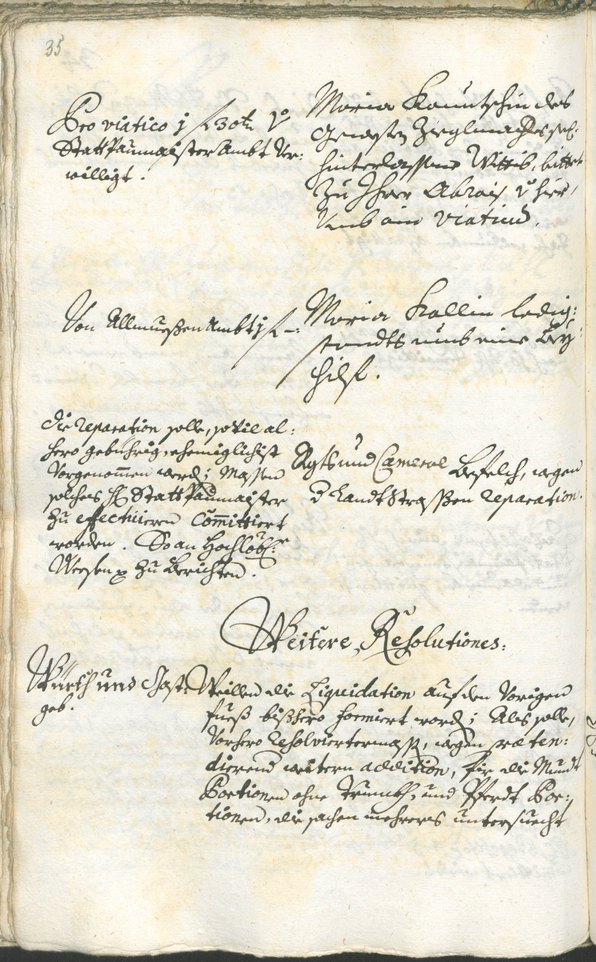 35
Pro viatico j f 30 kr
Stattpaumaister Ambt Ver:
willigt.
Maria Kauntschin des
gewesten Zieglmachers sel:
hinterlassene Wittib, bittet
zu Ihrer Abrais
umb ain viaticum.
Von Allmueßen Ambt j f
Maria Kallin ledig:
standts umb eine bey:
hilf.
die reparation solle, so vil al:
hero gebührig, ehemöglichist
vorgenommen werden; Massen
solches H: Stattpaumaister
zu effectuiren Committiert
worden. So an Hochlöbl:
Weesen zu berichten.
und Cameral Befelch, wegen
Landtstrassen reparation.
Weitere Resolutiones:
Würth und Gast:
geb.
Weillen die Liquidation auf den vorigen
fueß bißhero formiert worden; Als solle,
vorhero resolviertermassen, wegen præten:
dierend weitern addition, für die Mundt
Portionen ohne Trunckh, und Pferdt Por:
tionen, die sachen mehrers untersuecht